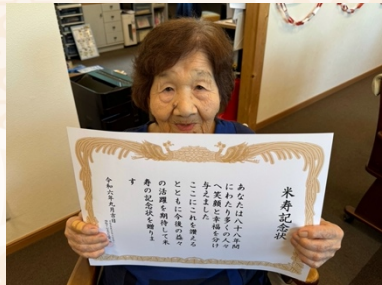 米寿記念状
あなたは八十八年間
にわたり多くの人々
へ笑顔と幸福を分け
与えました
ここにこれを讃える
とともに今後の益々
の活躍を期待して米
寿の記念状を贈りま
す
令和六年九月吉日